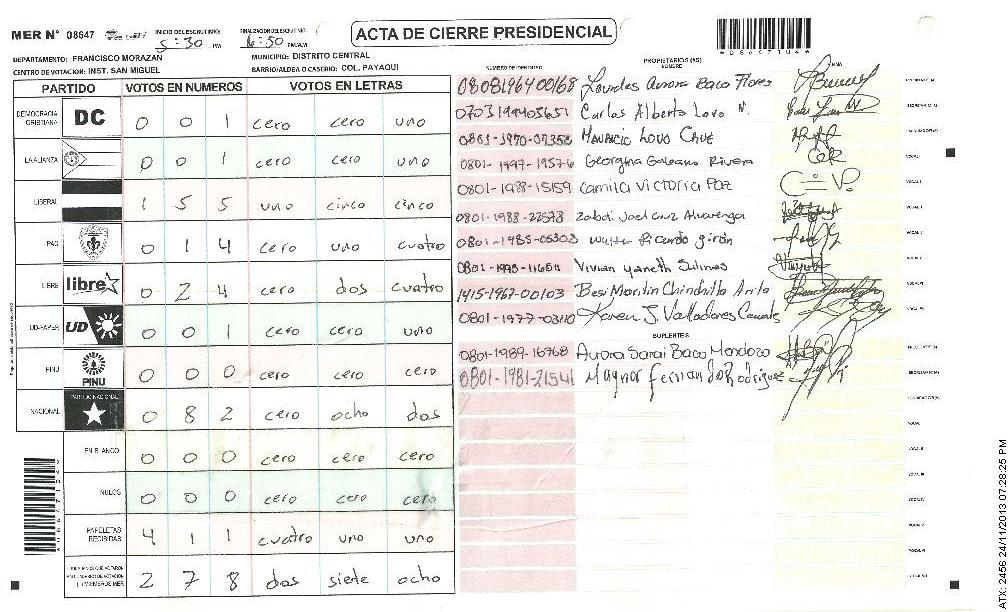 MER N° 08647
INICIO DEL ESCRUTINIO: 5:30 PM
FINALIZACION ESCRUTINIO: 6:50 PM/AM
ACTA DE CIERRE PRESIDENCIAL
DEPARTAMENTO: FRANCISCO MORAZAN
MUNICIPIO: DISTRITO CENTRAL
CENTRO DE VOTACION: INST. SAN MIGUEL
BARRIO/ALDEA O CASERIO: COL. PAYAQUI
PARTIDO VOTOS EN NUMEROS VOTOS EN LETRAS
DEMOCRACIA CRISTIANA DC 0 0 1 cero cero uno
LA ALIANZA 0 0 1 cero cero uno
LIBERAL 1 5 5 uno cinco cinco
PAC 0 1 4 cero uno cuatro
LIBRE libre 0 2 4 cero dos cuatro
UD-FAPER UD 0 0 1 cero cero uno
PINU PINU 0 0 0 cero cero cero
NACIONAL PARTIDO NACIONAL 0 8 2 cero ocho dos
EN BLANCO 0 0 0 cero cero cero
NULOS 0 0 0 cero cero cero
PAPELETAS RECIBIDAS 4 1 1 cuatro uno uno
2 7 8 dos siete ocho
NUMERO DE IDENTIDAD PROPIETARIOS (AS) NOMBRE FIRMA
0808196400168 Lourdes Aurora Baca Flores
0703199405651 Carlos Alberto Lovo
0801-1970-07358 Mauricio Lovo Cruz
0801-1997-19576 Georgina Galeano Rivera
0801-1988-15159 Camila Victoria Paz
0801-1988-22573 Joel Cruz Alvarenga
0801-1985-05308 Walter Ricardo girón
0801-1995-11654 Vivian Yaneth Salinas
1415-1967-00103
0801-1977-03110 Karen J. Valladares
SUPLENTES
0801-1989-16768 Aurora Sarai Baca Mendoza
0801-1981-21541 Maynor fernando Rodriguez
ATX: 2456 24/11/2013 07:28:25 PM